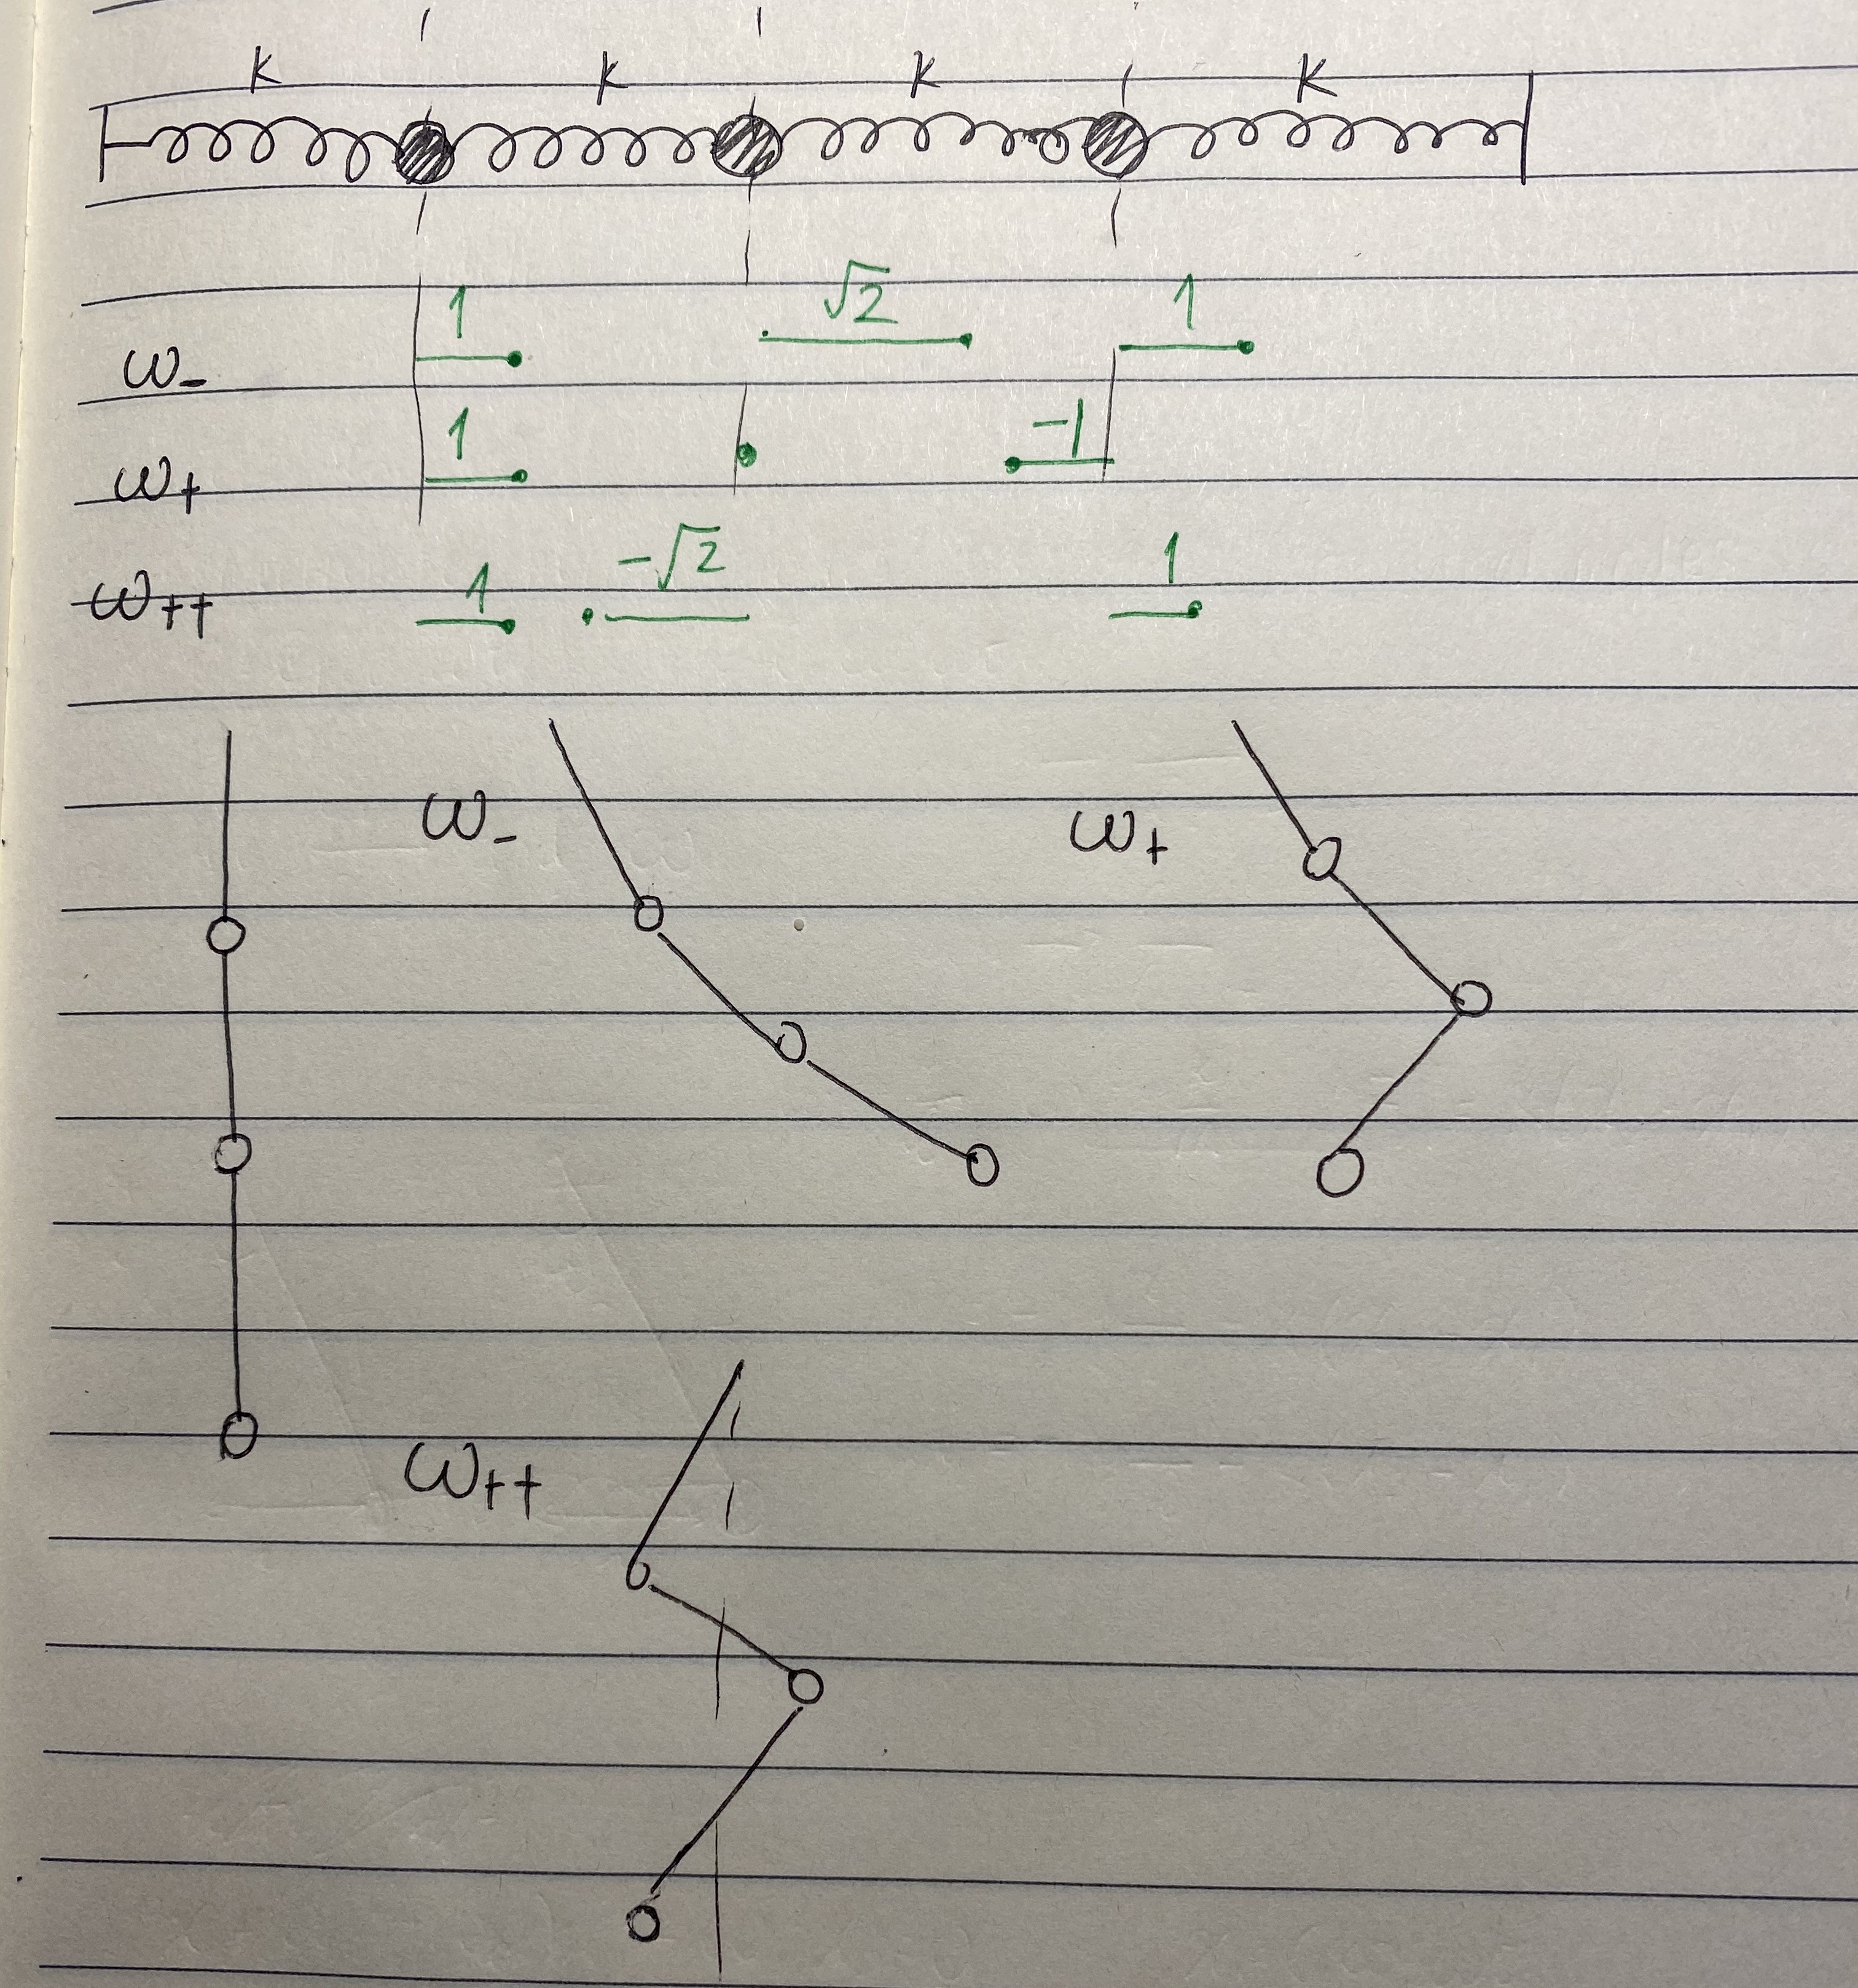 K K K K
1 √2 1
ω₋
1 -1
ω₊
1 -√2 1
ω₊₊
ω₋ ω₊
ω₊₊